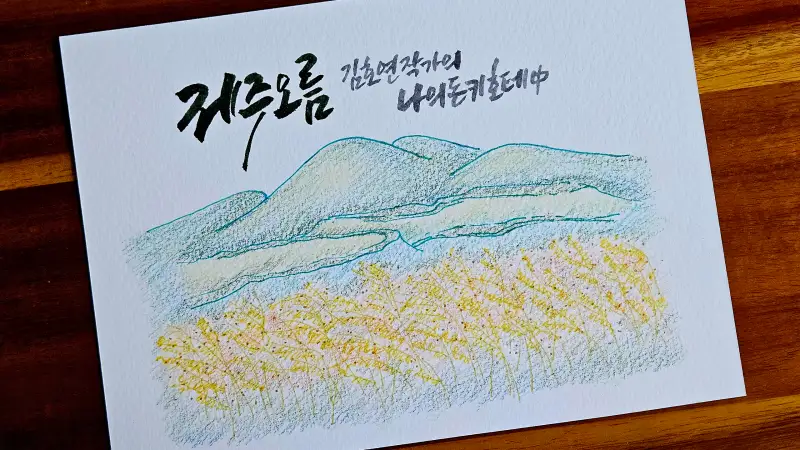 제주오름
김호연작가의
나의돈키호테中